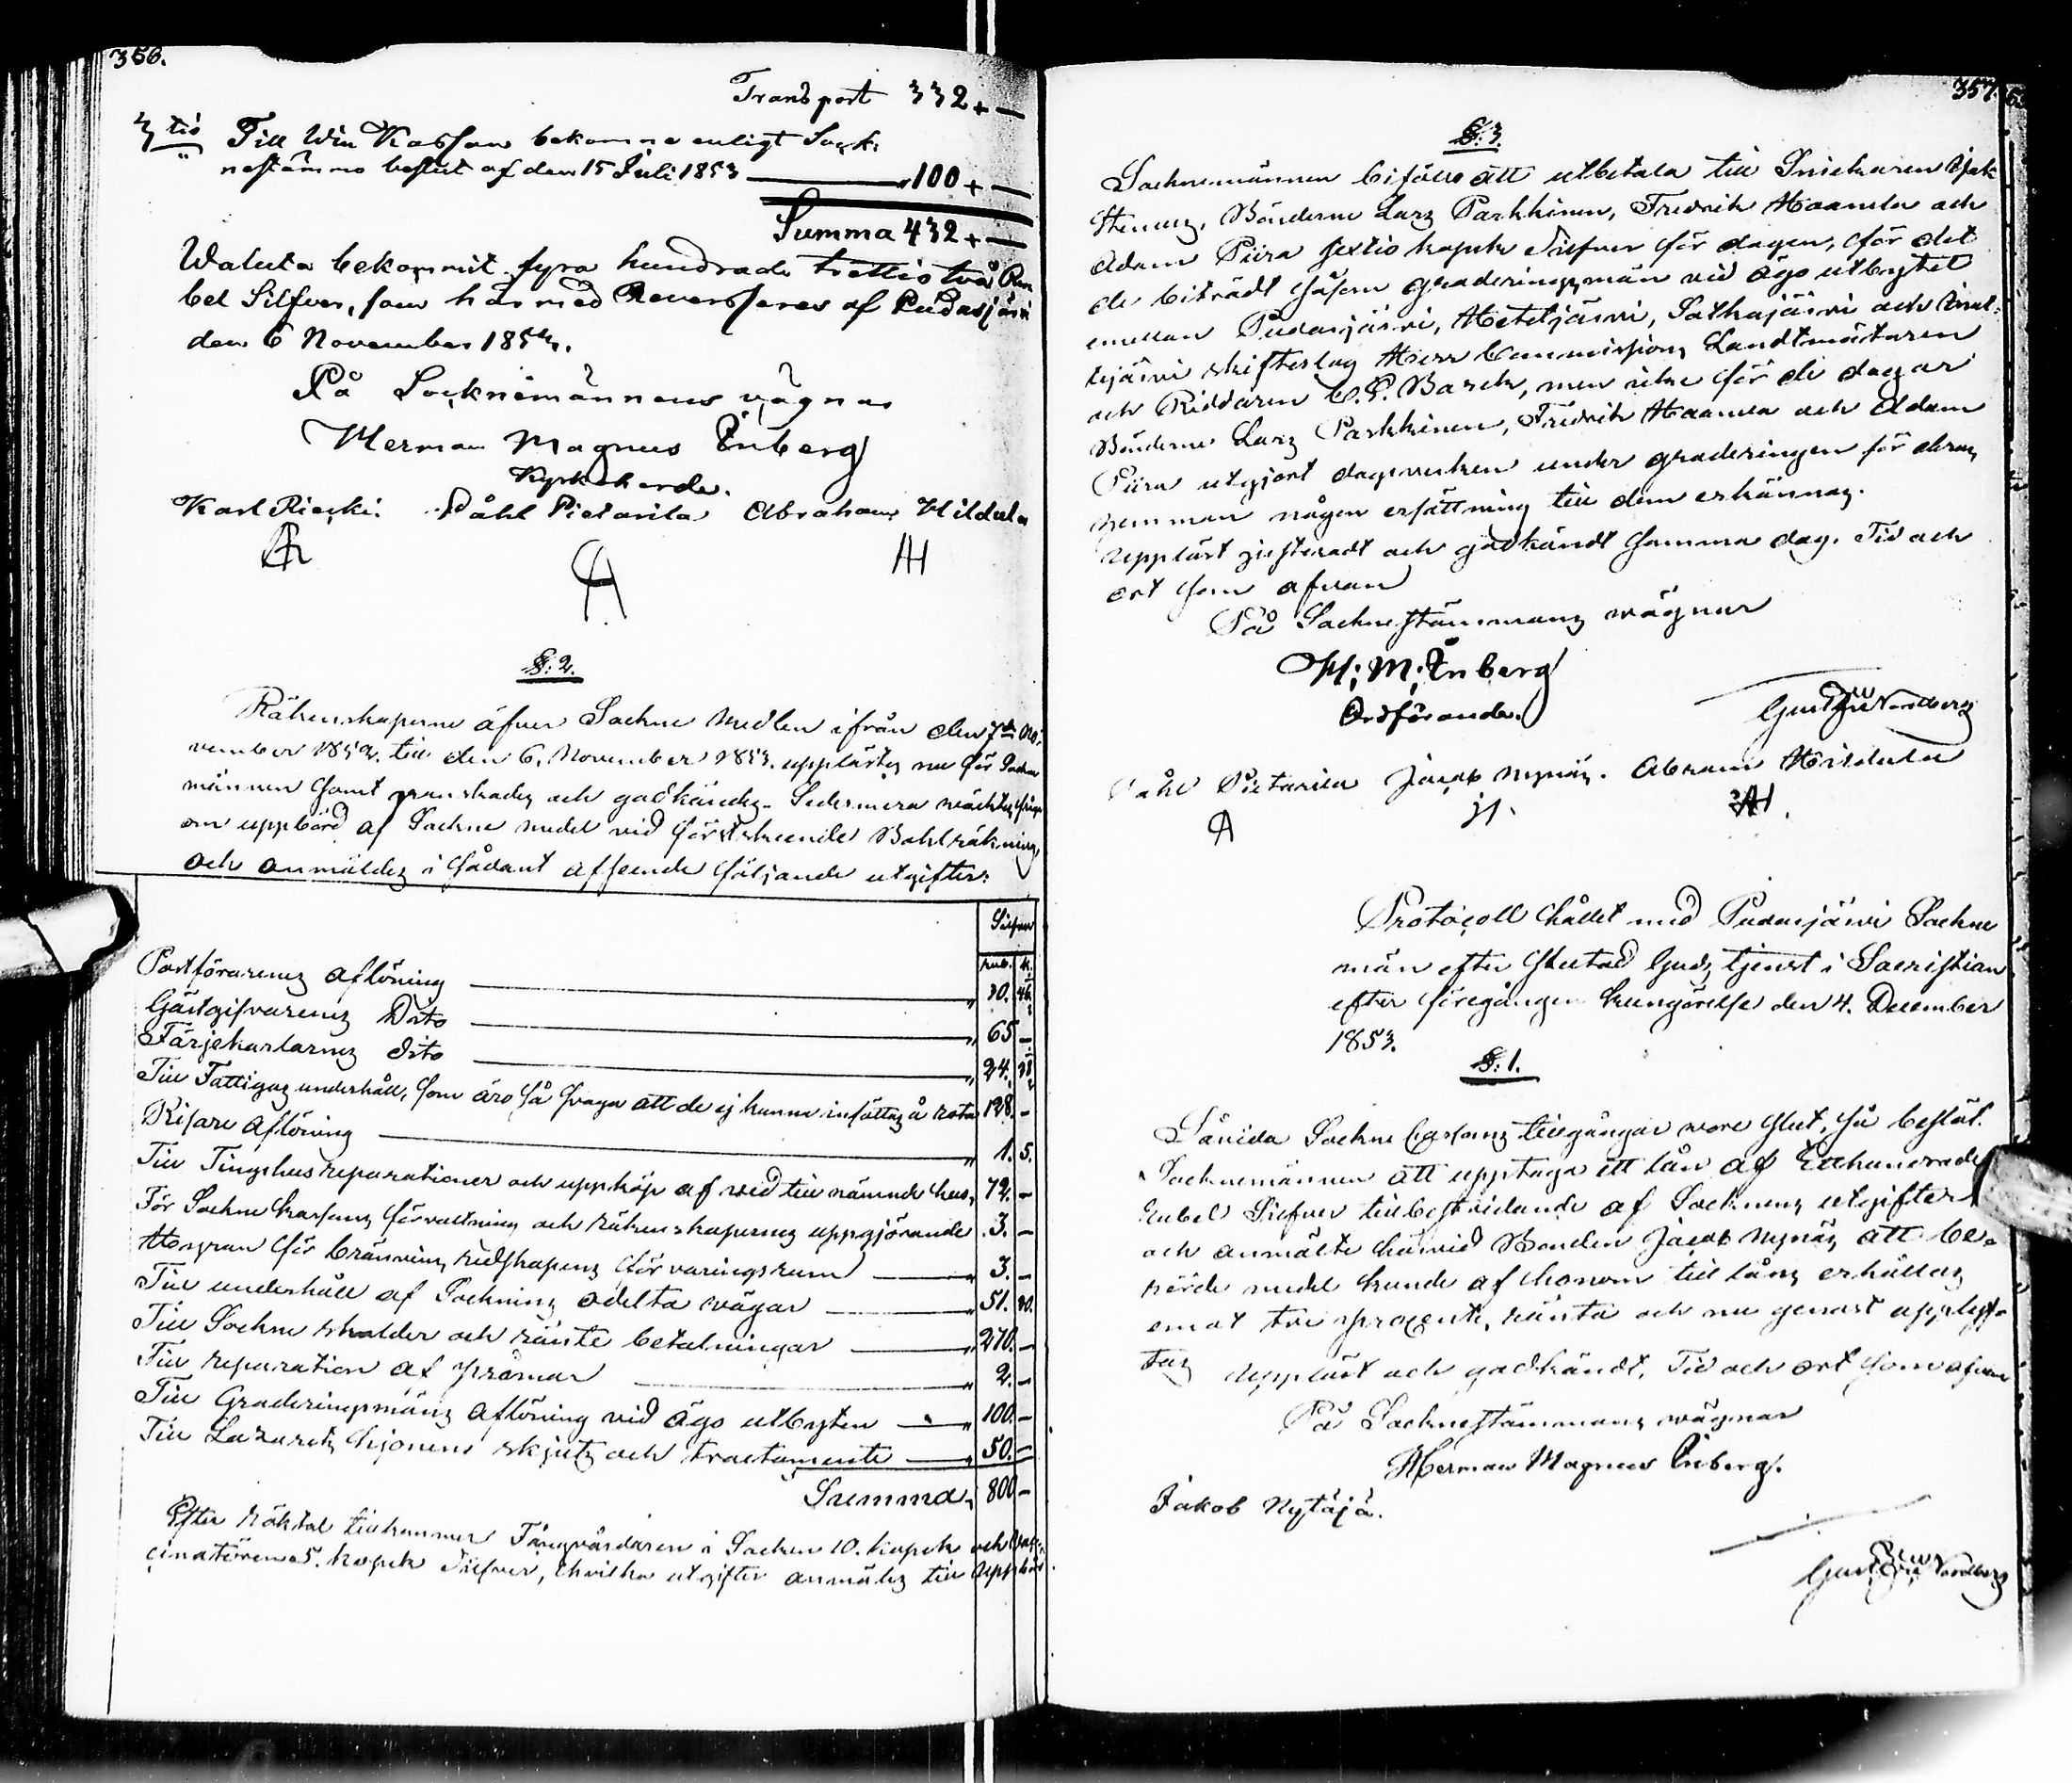 356.
Transport 332 + —
3 tio Till Win Kassan bekomne enligt Sock-
nestämno beslut af den 15 Juli 1853 — " 100 + —
Summa 432 + —
Waluta bekommit fyra hundrade trettio två Ru-
bel Silfver, som härmed Reverseras af Pudasjärvi
den 6 November 1853.
På Socknemännens vägnar
Herman Magnus Enberg
Kyrkoherde.
Karl Riepki. Påhl Pietarila Abraham Hildula
AH
§: 2.
Räkenskaperne äfver Sockne Medlen ifrån den 7de No-
vember 1852. till den 6. November 1853. upplästes nu för Sockne
männen samt granskades och godkändes. Sedermera wäcktes fråga
om uppbörd af Sockne medel vid förstskeende Bohlräkning,
och anmäldes i sådant afseende följande utgifter:
Silfver
rub. k.
Postförarens aflöning — " 30. 46.
Gästgifvarens Dito — " 65 —
Färjekarlarnes dito — " 24.
Till Fattigas underhåll, som äro så svaga att de ej kunna insättas å rota 128. —
Risare aflöning — " 1. 5.
Till Tingshus reparationer och uppköp af ved till nämnde hus, 72. —
För Sockne kassans förvaltning och räkenskapernes uppgjörande 3. —
Hyran för bränvins redskapens förvaringsrum — " 3. —
Till underhåll af Socknens odelta vägar — " 51.
Till Sockne skulder och ränte betalningar — " 270. —
Till reparation af pråmar — " 2. —
Till Graderingsmäns aflöning vid ägo utbyten — " 100. —
Till Lazarets hjonens skjuts och tractamente — " 50. —
Summa, 800 —
Efter röktal tillkommer Fångvårdaren i Socken 10. kopek och Vac-
cinatören 5. kopek Silfver, hvilka utgifter anmäles till uppbörd.
357.
§: 3.
Socknemännen biföllo att utbetala till Snickaren Isak
Stenius, Bönderne Lars Parkkinen, Fredrik Haamela och
Adam Piira sextio kopek Silfver för dagen, för det
de biträdt såsom graderingsmän vid ägo utbytet
emellan Pudasjärvi, Hetekjärvi, Sotkajärvi och
kjärvi skifteslag Herr Commissions Landtmätaren
och Riddaren C. P. Barck, men icke för de dagar
Bönderne Lars Parkkinen, Fredrik Haamela och Adam
Piira utgjort dagsverken under graderingen för deras
hemman någon ersättning till dem erkännas.
Uppläst justeradt och godkändt samma dag. Tid och
ort som ofvan
På Sockne stämmans wägnar
H: M: Enberg
Ordförande.
Gustaf Nordberg
Påhl Pietarila Jacob Nynäs. Abram Hildula
§: Protocoll hållet med Pudasjärvi Sockne
män efter slutad Guds tjenst i Sacristian
efter föregången kungörelse den 4. December
1853.
§: 1.
Såvida Sockne Cassans tillgångar vore slut, så beslöt
Socknemännen att upptaga ett lån af Etthundrade
Rubel Silfver till bestridande af Socknens utgifter
och anmälte härvid Bonden Jacob Nynäs att be-
hörde medel kunde af honom till låns erhållas
emot tre procents ränta och nu genast upplyf-
tas Uppläst och godkändt, Tid och ort som ofvan
På Sockne stämmans wägnar
Herman Magnus Enberg.
Jakob Nytäjä.
Gustaf Nordberg